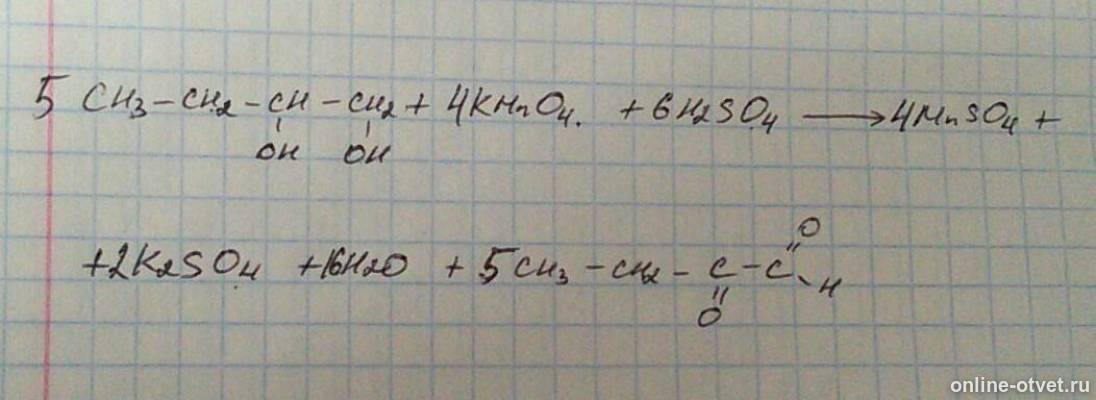 5 CH3-CH2-CH-CH2+ 4KMnO4. +6H2SO4 → 4MnSO4 +
OH OH
O
+2K2SO4 +16H2O + 5CH3-CH2-C-C
H
O
online-otvet.ru